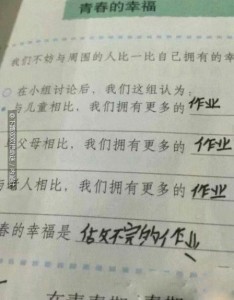 青春的幸福
我们不妨与周围的人比一比自己拥有的幸
在小组讨论后，我们这组认为：
与儿童相比，我们拥有更多的作业
父母相比，我们拥有更多的作业
人相比，我们拥有更多的作业
春的幸福是
作业